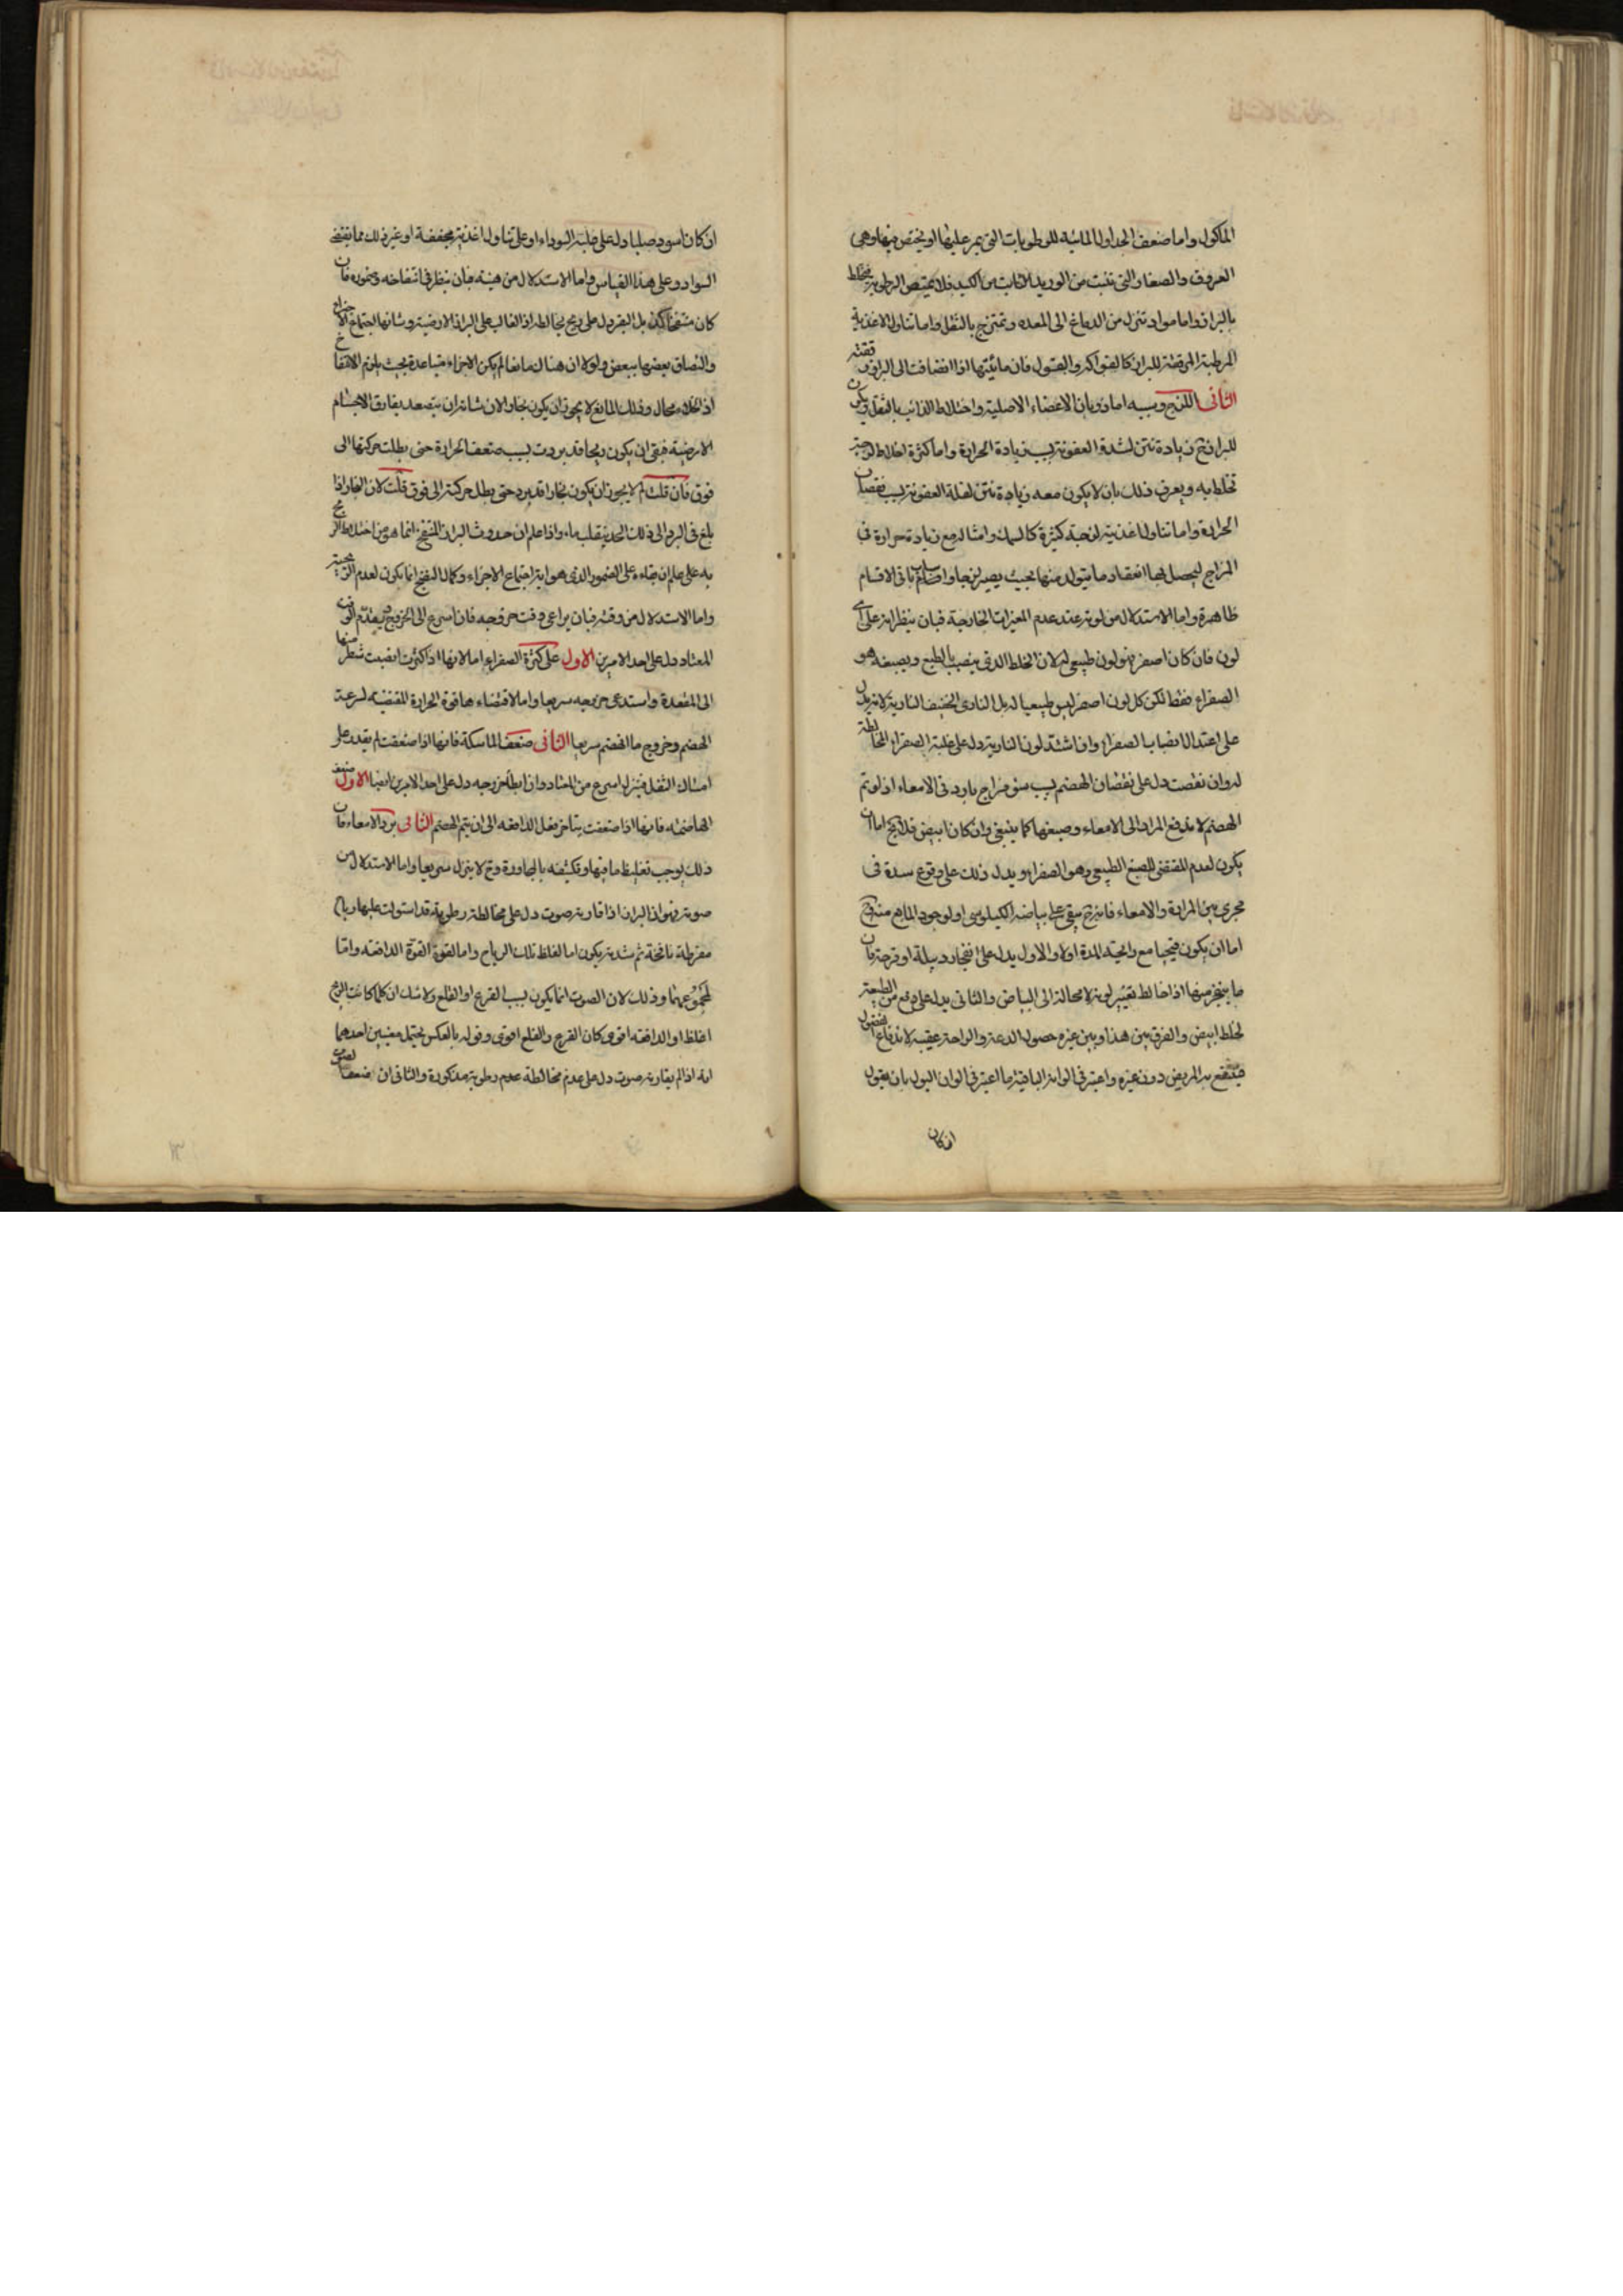 المأكول واما ضعف الجداول الماسية للرطوبات التي يمر عليها او يختص منها وهي
العروق والصغار التي تنبت من الوريد النابت من الكبد فلا يمتص الرطوبة فيختلط
بالبراز واما مواد تنزل من الدماغ الى المعده وتمتزج بالثفل واما تناول الاغذية
المرطبة المرققة للبراز كالفواكه والبقول فان مائيتها اذا انضافت الى البراز رققته
الثانى اللزج وسببه اما ذوبان الاعضاء الاصلية واختلاط الذائب بالثفل ويكون
للبراز ح زيادة نتن لشدة العفونة بسبب زيادة الحرارة واما كثرة اخلاط لزجة
تختلط به ويعرف ذلك بان لا يكون معه زيادة نتن لقلة العفونة بسبب نقصان
الحرارة واما تناول اغذية لزجة كثيرة كالسمك وامثاله مع زيادة حرارة في
المزاج ليحصل لها انعقاد ما يتولد منها بحيث يصير لزجا واصلم باقى الاقسام
ظاهرة واما الاستدلال من لونه عند عدم المغيرات الخارجة فبان ينظر انه على اى
لون فان كان اصفر فهو لون طبيعي له لان الخلط الذي ينصب بالطبع ويصبغه هو
الصفراء فقط لكن كل لون اصفر ليس طبيعيا له بل النارى الخفيف النارية لانه يدل
على اعتدال انصباب الصفراء وان اشتد لون النارية دل على غلبة الصفراء المخالطة
له وان نقصت دل على نقصان الهضم بسبب سوء مزاج بارد في الامعاء اذ لو تم
الهضم لاندفع المرار الى الامعاء وصبغها كما ينبغي وان كان ابيض فلا يخ اما ان
يكون لعدم المقتضى للصبغ الطبيعي وهو الصفراء ويدل ذلك على وقوع سدة في
مجرى بين المرارة والامعاء فانه ح يبقى على بياضه الكيلوسى او لوجود المانع منه وح
اما ان يكون قيحيا مع رائحة المدة اولا والاول يدل على انفجار دبيلة او قرحة فان
ما ينفجر منها اذا خالط تغير لونه لا محالة الى البياض والثاني يدل على دفع من الطبيعة
لخلط ابيض والفرق بين هذا وبين غيره حصول الدعة والراحة عقيبه لاندفاع الفضول
فينتفع به المريض دون غيره واعتبر في الوانه الباقية ما اعتبر في الوان البول بان يقول
ان كان
ان كان اسود صلبا دل على غلبة السوداء او على تناول اغذية مجففة او غير ذلك مما يقتضى
السواد وعلى هذا القياس واما الاستدلال من هيئته فبان ينظر في انتفاخه وضموره فان
كان منتفخا كذى بل البقر دل على ريح يخالطه اذ الغالب على البراز الارضية وشانها اجتماع الاجزاء
والتصاق بعضها ببعض ولولا ان هناك مانعا لم يكن الاجزاء متباعدة بحيث يلزم الانتفاخ
اذ الخلاء محال وذلك المانع لا يجوز ان يكون بخارا لان شانه ان يتصعد يفارق الاجسام
الارضية فبقى ان يكون ريحا قد بردت بسبب ضعف الحرارة حتى بطلت حركتها الى
فوق فان قلت لم لا يجوز ان يكون بخارا قد برد حتى بطل حركته الى فوق قلت لان البخار اذا
بلغ في البرد الى ذلك الحد ينقلب ماء واذا علم ان حدوث البراز المنتفخ انما هو من اختلاط الريح
به على علم ان بقاءه على الضمور الذى هو اية اجتماع الاجزاء وكمال النضج انما يكون لعدم الريحية
واما الاستدلال من وقته فبان يراعى وقت خروجه فان اسرع الى الخروج ويقدم الوقت
المعتاد دل على احد الامرين الاول على كثرة الصفراء اما لانها اذا كثرت انصبت شطر منها
الى المقعدة واستدعى خروجه سريعا واما لاقتضاءها قوة الحرارة المقتضية لسرعة
الهضم وخروج ما انهضم سريعا الثانى ضعف الماسكة فانها اذا ضعفت لم يقدر على
امساك الثفل فينزل اسرع من المعتاد وان ابطأ خروجه دل على احد الامرين ايضا الاول ضعف
الهاضمة فانها اذا ضعفت يتاخر فعل الدافعه الى ان يتم الهضم الثانى برد الامعاء فان
ذلك يوجب تغليظ ما فيها وتكثيفه بالمجاورة وح لا ينزل سريعا واما الاستدلال من
صوته فهو ان البراز اذا قارنه صوت دل على مخالطة رطوبة قد استولت عليها رياح
مفرطة نافخة ثم شدته يكون اما لغلظ تلك الرياح واما لقوة القوة الدافعه واما
لمجموعهما وذلك لان الصوت انما يكون بسبب القرع او القلع ولا شك ان كلما كانت الريح
اغلظ او الدافعه اقوى كان القرع والقلع اقوى وقوله بالعكس يحتمل معنيين احدهما
انه اذا لم يقارنه صوت دل على عدم مخالطة عدم رطوبة مذكورة والثانى ان ضعف الصوت